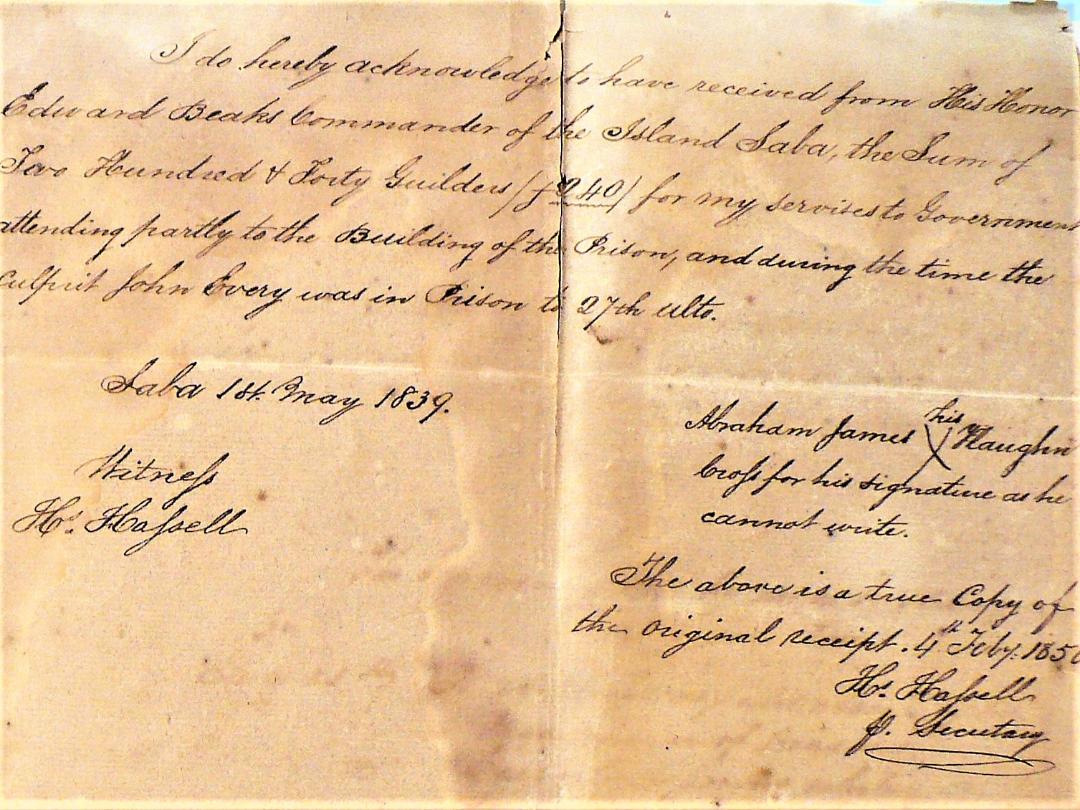 I do hereby acknowledge to have received from His Honor
Edward Beaks Commander of the Island Saba, the Sum of
Two Hundred & Forty Guilders /ƒ240/ for my servises to Government
attending partly to the Building of the Prison, and during the time the
Culprit John Every was in Prison to 27th ulto.
Saba 1st. May 1839.
his
Abraham James X Vlaughn
Cross for his signature as he
cannot write.
Witness
Hs. Hassell
The above is a true Copy of
the original receipt. 4th Feby: 1850
Hs. Hassell
Secretary